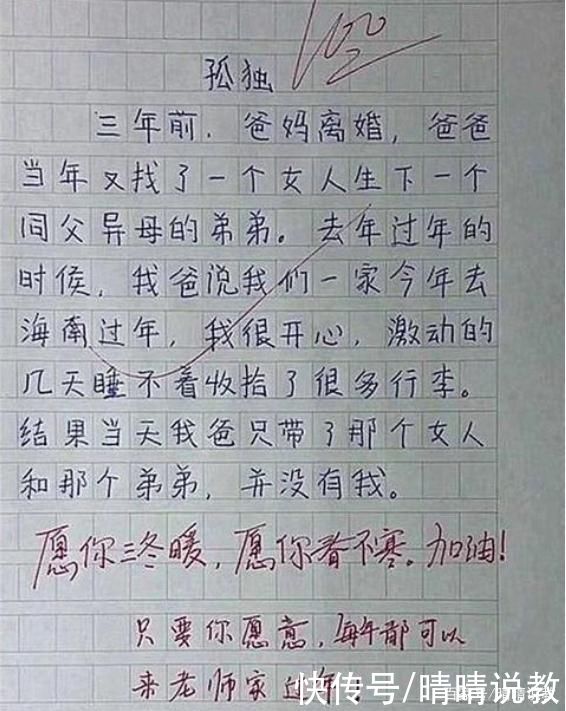 100
孤独
三年前，爸妈离婚，爸爸
当年又找了一个女人生下一个
同父异母的弟弟。去年过年的
时侯，我爸说我们一家今年去
海南过年，我很开心，激动的
几天睡不着收拾了很多行李。
结果当天我爸只带了那个女人
和那个弟弟，并没有我。
愿你三冬暖，愿你春不寒。加油！
只要你愿意，每年都可以
来老师家过年！
快传号/晴晴说教